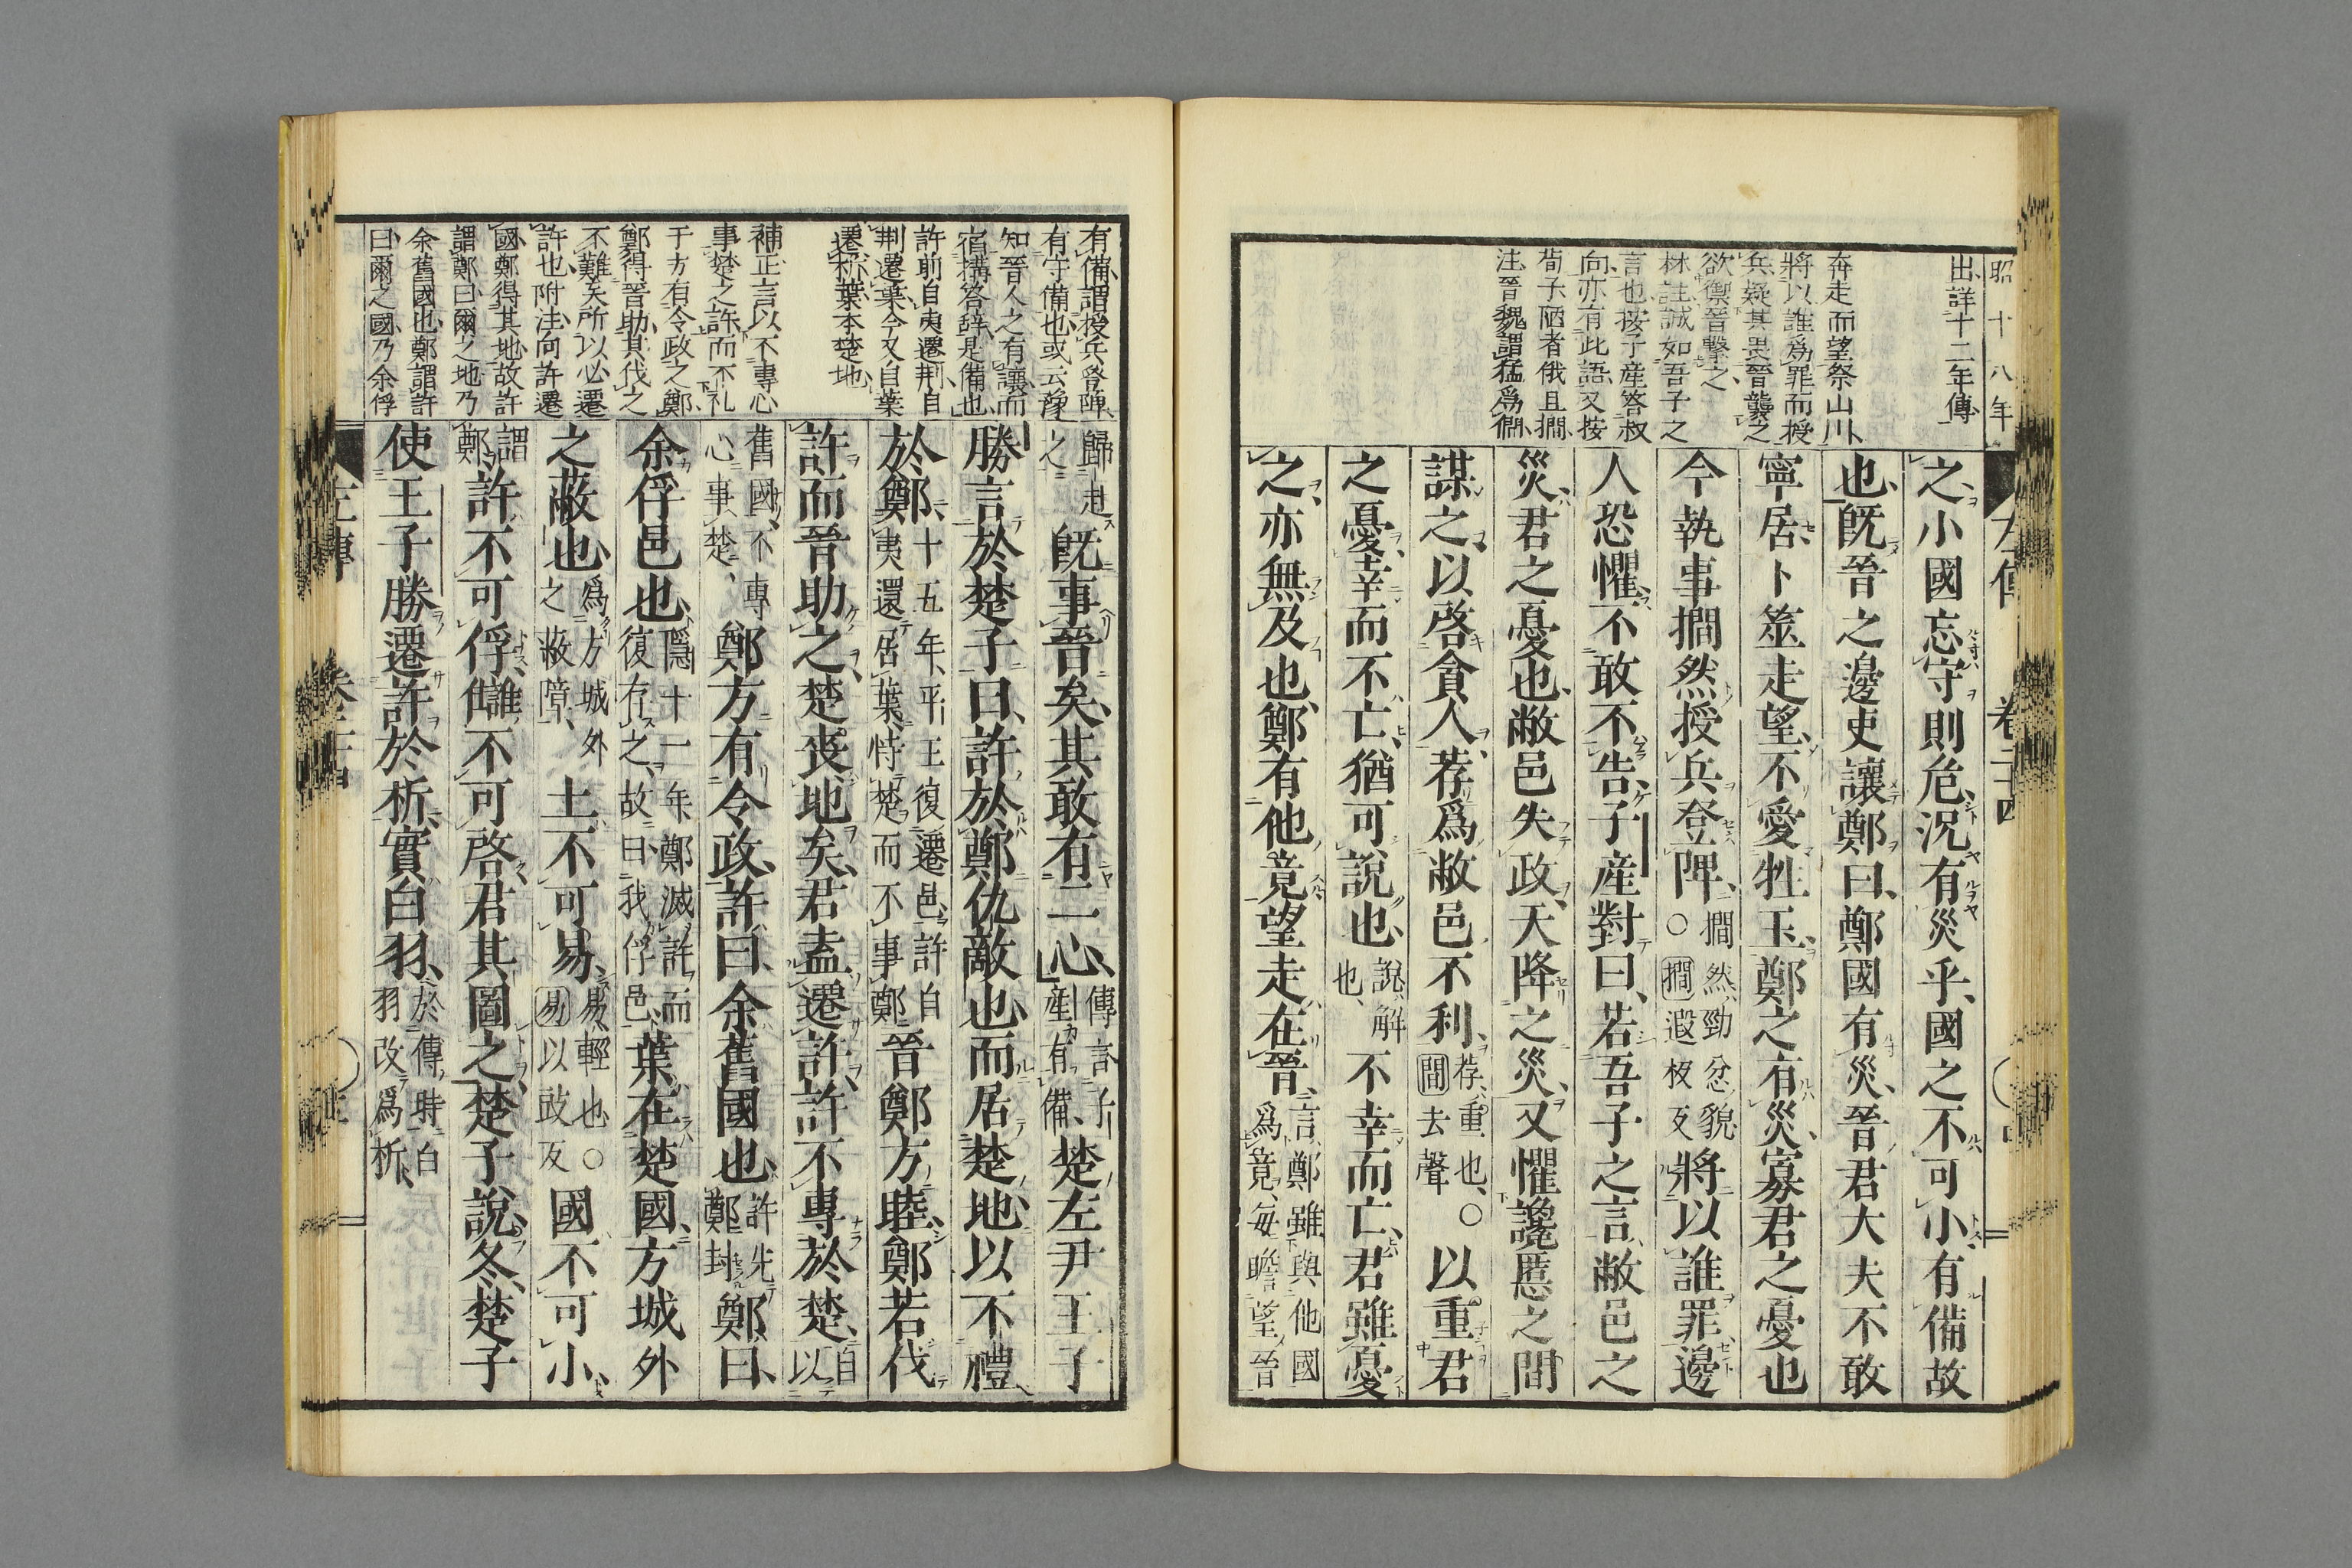 昭十八年
左傳　卷二十四
出詳十二年傳
奔走而望祭山川
將以誰爲罪而授
兵疑其畏晉襲之
欲禦晉擊之
林註誠如吾子之
言也按子産答叔
向亦有此語又按
荀子陋者俄且撊
注晉魏謂猛爲僩
之、小國忘守則危、況有災乎、國之不可小、有備故
也、旣晉之邊吏讓鄭曰、鄭國有災、晉君大夫不敢
寧居、卜筮走望、不愛牲玉、鄭之有災、寡君之憂也
今執事撊然授兵登陴、撊然、勁忿貌○撊遐板反將以誰罪、邊
人恐懼、不敢不告、子産對曰、若吾子之言、敝邑之
災、君之憂也、敝邑失政、天降之災、又懼讒慝之間
謀之、以啓貪人、荐爲敝邑不利、荐、重也、○間去聲以重君
之憂、幸而不亡、猶可說也、說、解也、不幸而亡、君雖憂
之、亦無及也、鄭有他竟、望走在晉、言、鄭雖與他國爲竟、每瞻望晉
有備謂授兵登陴
有守備也或云豫
知晉人之有讓而
宿搆答辞是備也
許前自夷遷荆自
荆遷葉今又自葉
遷析葉本楚地
補正言以不專心
事楚之許而不礼
于方有令政之鄭
鄭得晉助其伐之
不難矣所以必遷
許也附注向許遷
國鄭得其地故許
謂鄭曰爾之地乃
余舊國也鄭謂許
曰爾之國乃余俘
歸赴之旣事晉矣、其敢有二心、傳言子産有備、楚左尹王子
勝言於楚子曰、許於鄭仇敵也、而居楚地、以不禮
於鄭、十五年、平王復遷邑、許自夷還居葉、恃楚而不事鄭晉鄭方睦、鄭若伐
許而晉助之、楚喪地矣、君盍遷許、許不專於楚、自以
舊國、不專心事楚、鄭方有令政、許曰、余舊國也、許先鄭封鄭曰、
余俘邑也、隱十一年鄭滅許、而復存之、故曰我俘邑、葉在楚國、方城外
之蔽也、爲方城外之蔽障、土不可易、易、輕也、○易以豉反國不可小、
謂鄭許不可俘、讎不可啓、君其圖之、楚子說、冬、楚子
使王子勝遷許於析、實白羽、於傳時白羽改爲析、
左傳　卷二十四